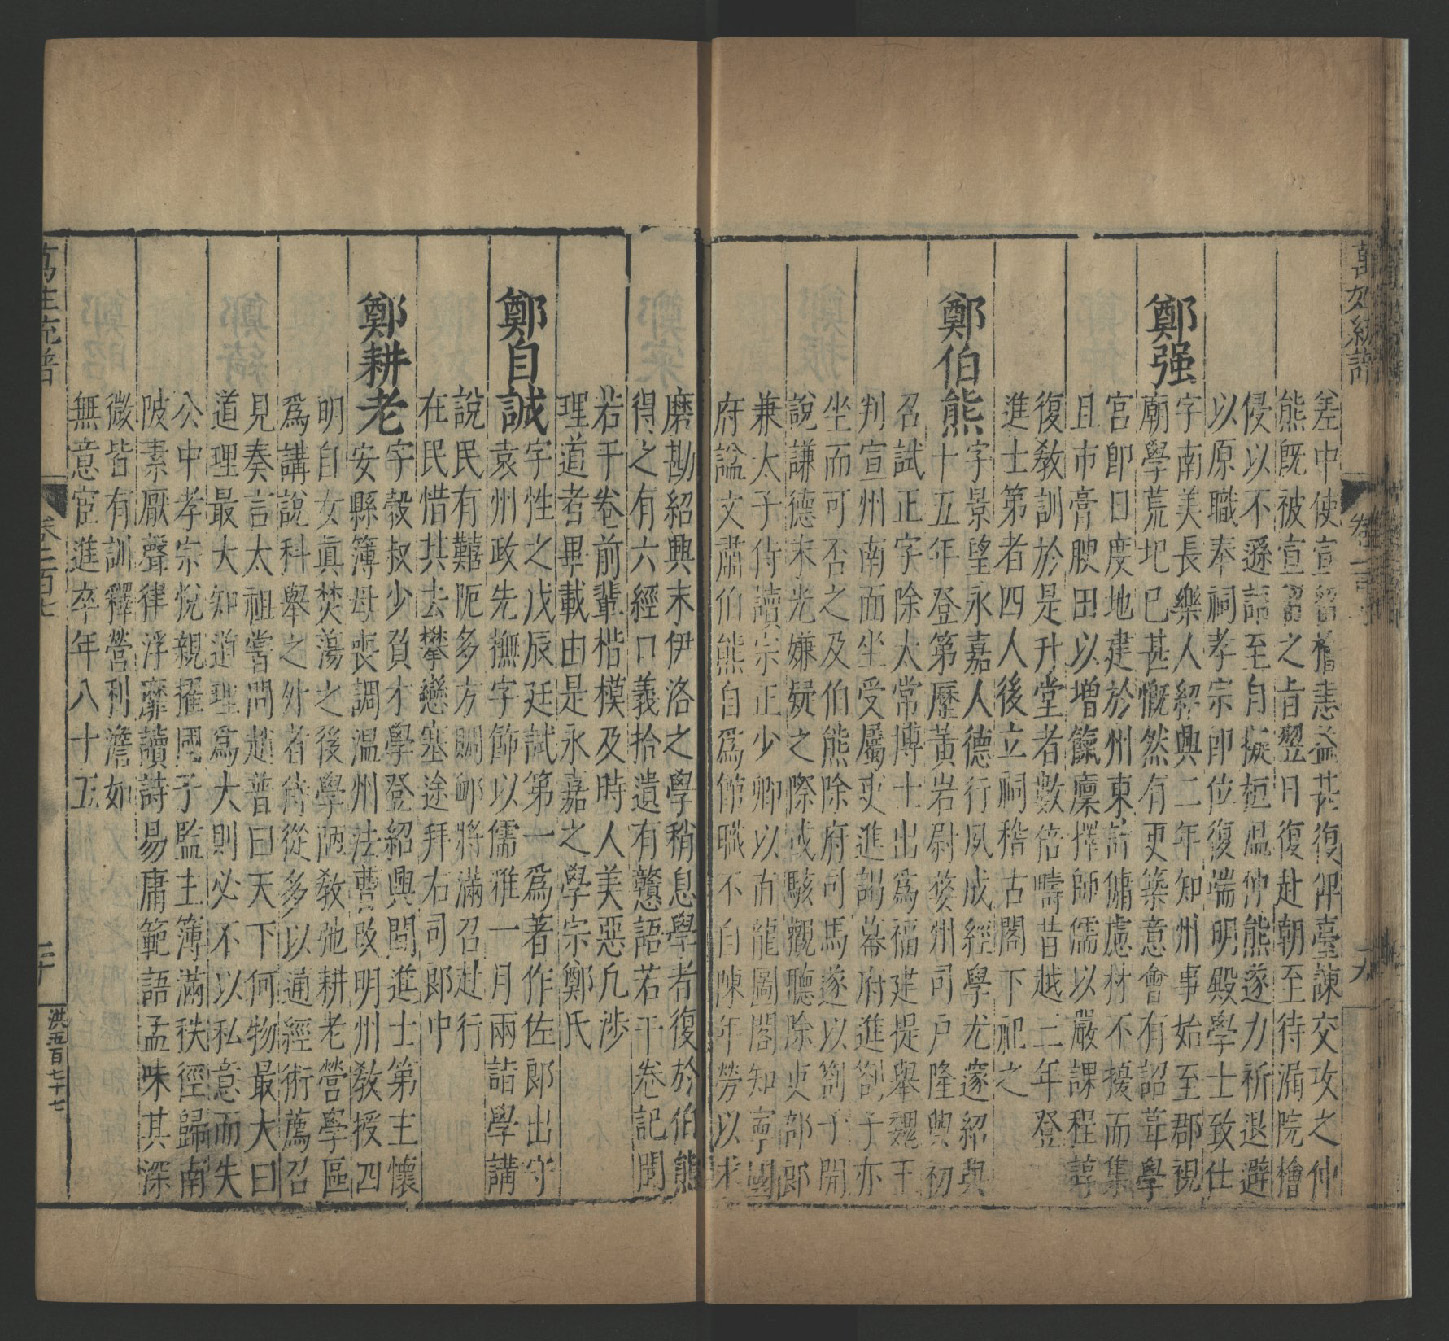 萬姓統譜
卷一百七
十九
差中使宣留檜恚益甚復俾臺諫交攻之仲
熊既被宣留之旨翌日復赴朝至待漏院檜
侵以不遜語至自擬桓溫仲熊遂力祈退避
以原職奉祠孝宗卽位復端明殿學士致仕
鄭强
字南美長樂人紹興二年知州事始至郡視
廟學荒圮已甚慨然有更築意會有詔葺學
宮卽日度地建於州東計傭慮材不擾而集
且市膏腴田以增餼廩擇師儒以嚴課程諄
復敎訓於是升堂者數倍疇昔越三年登
進士第者四人後立祠稽古閣下祀之
鄭伯熊
字景望永嘉人德行夙成經學尤邃紹興
十五年登第歷黃岩尉婺州司戶隆興初
召試正字除太常博士出爲福建提舉魏王
判宣州南面坐受屬吏進謁幕府進劄子亦
坐而可否之及伯熊除府司馬遂以劄子開
說謙德末光嫌疑之際或駭觀聽除吏部郎
兼太子侍讀宗正少卿以直龍圖閣知寧國
府諡文肅伯熊自爲館職不自陳年勞以求
磨勘紹興末伊洛之學稍息學者復於伯熊
得之有六經口義拾遺有戇語若干卷記聞
若干卷前輩楷模及時人美惡凡涉
理道者畢載由是永嘉之學宗鄭氏
鄭自誠
字性之戊辰廷試第一爲著作佐郎出守
袁州政先撫字飾以儒雅一月兩詣學講
說民有艱阨多方賙卹將滿召赴行
在民惜其去攀戀塞途拜右司郎中
鄭耕老
字穀叔少負才學登紹興間進士第主懷
安縣簿母喪調溫州法曹改明州敎授四
明自女眞焚蕩之後學陋敎弛耕老營學區
爲講說科舉之外者倚從多以通經術薦召
見奏言太祖嘗問趙普曰天下何物最大曰
道理最大知道理爲大則必不以私意而失
公中孝宗悅親擢國子監主簿滿秩徑歸南
陂素厭聲律浮靡讀詩易庸範語孟味其深
微皆有訓釋營利澹如
無意宦進卒年八十五
萬姓統譜
卷一百七
二十
洪五百七十七